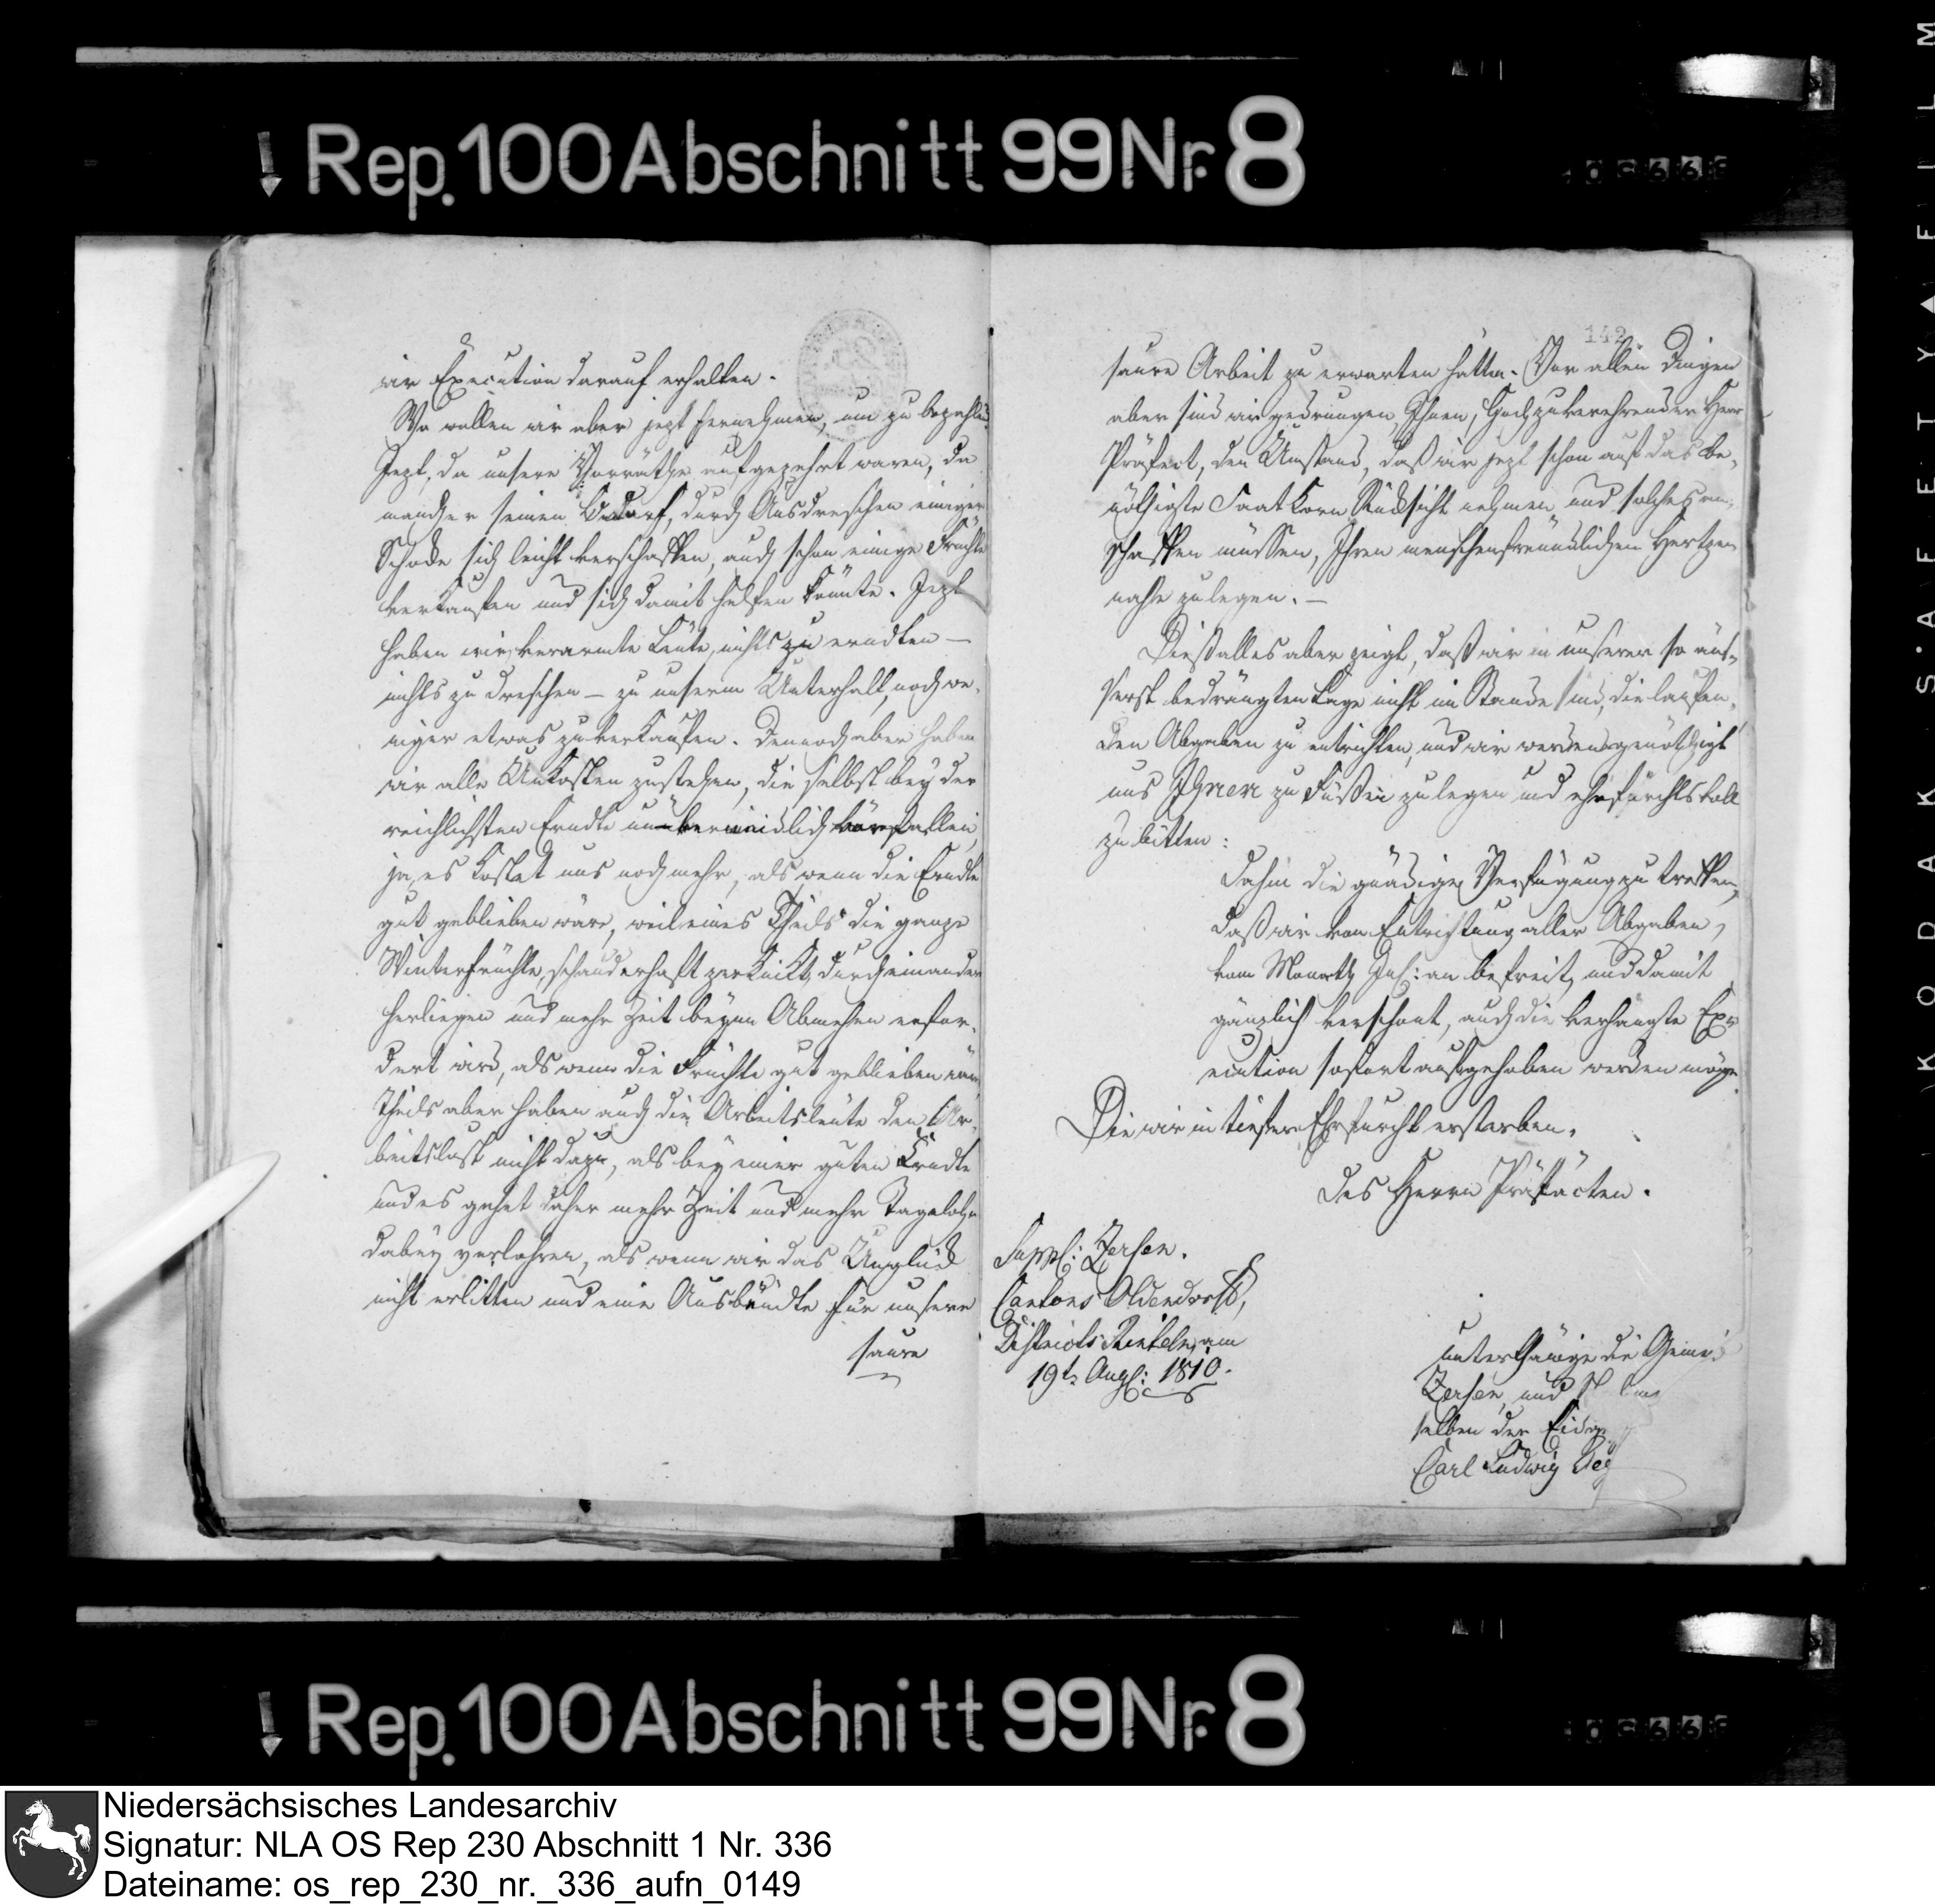 Rep. 100 Abschnitt 99 Nr. 8
wir Execution darauf erhalten.
Wo wollen wir aber jezt hernehmen, um zu bezahlen
Jezt, da unsere Vorräthe aufgezehrt waren, da
mancher seinen Bedarf, durch Ausdreschen einiger
Schocke sich leicht verschaffen, auch schon einige Früchte
verkaufen und sich damit helfen könnte. Jezt
haben wir, verarmte Leute, nichts zu erndten —
nichts zu dreschen — zu unserm Unterhalt, noch we-
niger etwas zu verkaufen. Dennoch aber haben
wir alle Unkosten zustehen, die selbst bey der
reichlichsten Erndte unvermeidlich vorfallen,
ja, es kostet uns noch mehr, als wenn die Erndte
gut geblieben wäre, weil eines Theils die ganze
Winterfrüchte, schauderhaft zerknikt, durcheinander
herliegen und mehr Zeit beym Abmehen erfor-
dert wird, als wenn die Früchte gut geblieben wär,
Theils aber haben auch die Arbeitsleute den Ar-
beitslust nicht dazu, als bey einer guten Erndte
und es gehet daher mehr Zeit und mehr Tagelohn
dabey verlohren, als wenn wir das Unglück
nicht erlitten und eine Ausbeute für unsere
saure
142
saure Arbeit zu erwarten hätten. Vor allen Dingen
aber sind wir gedrungen, Ihnen, Hochzuverehrender Herr
Präfect, den Umstand, daß wir jezt schon auf das be-
nöthigte Saat Korn Rücksicht nehmen und solches an-
schaffen müssen, Ihren menschenfreundlichen Hertzen
nahe zulegen. —
Dieß alles aber zeigt, daß wir in unserer so äus-
serst bedrängten Lage nicht im Stande sind, die laufen-
den Abgaben zu entrichten, und wir werden genöthigt
uns Ihnen zu Füßen zu legen und ehrfurchtsvoll
zu bitten:
dahin die gnädige Verfügung zu treffen,
daß wir von Entrichtung aller Abgaben,
vom Monath Jul: an befreit, und damit
gänzlich verschont, auch die verhängte Ex-
ecution sofort aufgehoben werden möge.
Die wir in tiefster Ehrfurcht ersterben.
des Herrn Präfäcten.
Suppl: Zersen.
Cantons Oldendorff,
Districts Rinteln, am
19t. Aug: 1810.
unterthänige die Gemei
Zersen, und
selben der
Carl Ludwig
Rep. 100 Abschnitt 99 Nr. 8
KODAK SAFETY FILM
Niedersächsisches Landesarchiv
Signatur: NLA OS Rep 230 Abschnitt 1 Nr. 336
Dateiname: os_rep_230_nr._336_aufn_0149